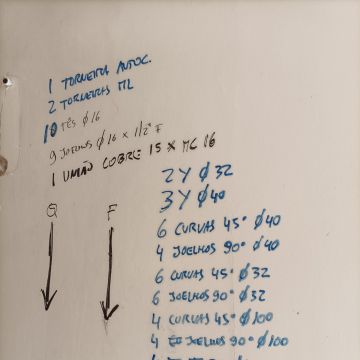 1 TORNEIRA AUTOC.
2 TORNEIRAS ML
10 TÊS Ø16
9 JOELHOS Ø16 x 1/2" F
1 UNIÃO COBRE 15 X MC 16
2 Y Ø32
3 Y Ø40
Q F
6 CURVAS 45° Ø40
4 JOELHOS 90° Ø40
6 CURVAS 45° Ø32
6 JOELHOS 90° Ø32
4 CURVAS 45° Ø100
4 JOELHOS 90° Ø100